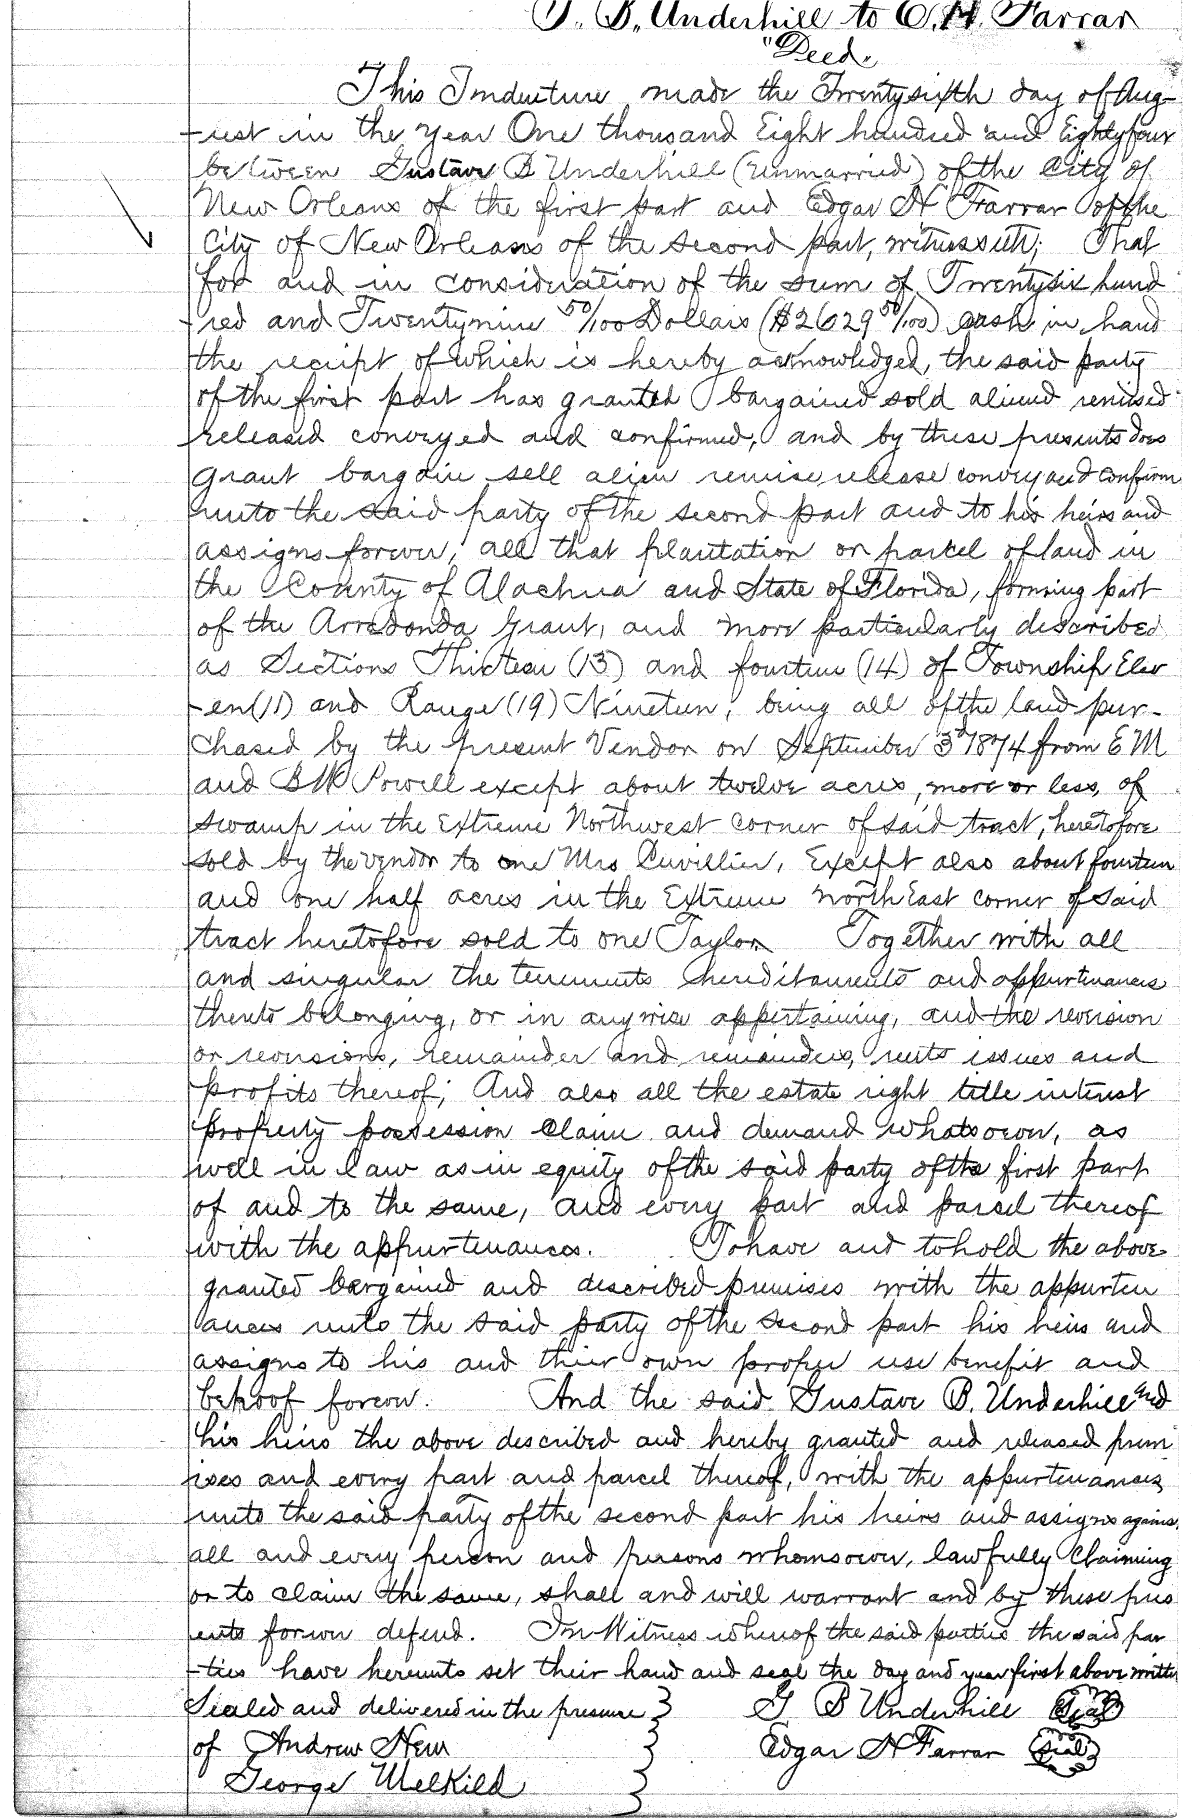 G. B. Underhill to E. H. Farrar
"Deed"
This Indenture made the Twentysixth day of Aug-
-ust in the year One thousand Eight hundred and Eightyfour
between Gustave B Underhill (unmarried) of the City of
New Orleans of the first part and Edgar H Farrar of the
City of New Orleans of the second part, witnesseth; That
for and in consideration of the sum of Twentysix hund
-red and Twentynine 50/100 Dollars ($2629 50/100) cash in hand
the receipt of which is hereby acknowledged, the said party
of the first part has granted bargained sold aliened remised
released conveyed and confirmed, and by these presents does
grant bargain sell alien remise release convey and confirm
unto the said party of the second part and to his heirs and
assigns forever, all that plantation or parcel of land in
the County of Alachua and State of Florida, forming part
of the Arredonda Grant, and more particularly described
as Sections Thirteen (13) and fourteen (14) of Township Elev
-en (11) and Range (19) Nineteen, being all of the land pur-
chased by the present Vendor on September 3d 1874 from E M
and B W Powell except about twelve acres, more or less, of
swamp in the Extreme Northwest corner of said tract, heretofore
sold by the vendor to one Mrs Cuvillier, Except also about fourteen
and one half acres in the Extreme north East corner of said
tract heretofore sold to one Taylor Together with all
and singular the tenements hereditaments and appurtenances
thereto belonging, or in anywise appertaining, and the reversion
or reversions, remainder and remainders, rents issues and
profits thereof; And also all the estate right title interest
property possession claim and demand whatsoever, as
well in law as in equity of the said party of the first part
of and to the same, and every part and parcel thereof
with the appurtenances. To have and to hold the above
granted bargained and described premises with the appurten
ances unto the said party of the second part his heirs and
assigns to his and their own proper use benefit and
behoof forever. And the said Gustave B. Underhill and
his heirs the above described and hereby granted and released prem
ises and every part and parcel thereof, with the appurtenances
unto the said party of the second part his heirs and assigns against
all and every person and persons whomsoever, lawfully claiming
or to claim the same, shall and will warrant and by these pres
ents forever defend. In Witness whereof the said parties the said par
-ties have hereunto set their hand and seal the day and year first above written
Sealed and delivered in the presence } G B Underhill Seal
of Andrew Hew } Edgar H Farrar Seal
George }